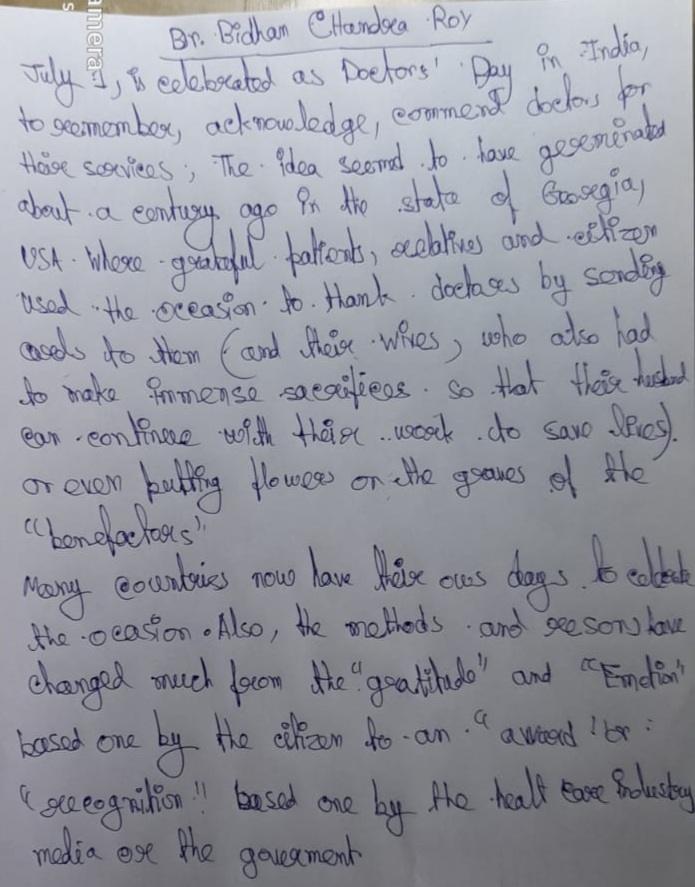 Dr. Bidhan Chandra Roy
July 1, is celebrated as Doctors' Day in India,
to remember, acknowledge, commend doctors for
their services; The idea seemed to have gereminated
about a century ago in the state of Georgia,
USA. Where grateful patients, relatives and citizen
used the occasion to thank doctors by sending
cards to them (and their wives, who also had
to make immense sacrifices so that their husband
can continue with their work to save lives).
or even putting flowers on the graves of the
"benefactors"
Many countries now have their own days to
the ocasion. Also, the methods and reasons have
changed much from the "gratitude" and "Emotion"
based one by the citizen to an "award" or
"recognition" based one by the healt care industry
media or the goverment
amera
s